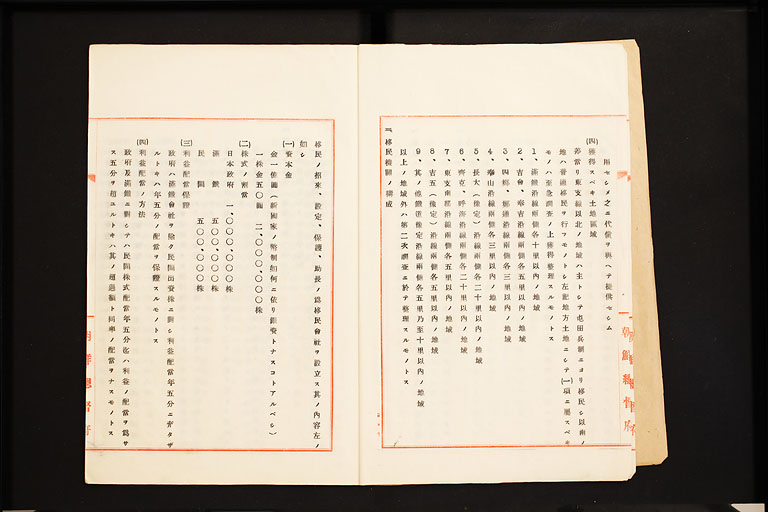 用セシメ之ニ代償ヲ與ヘテ提供セシム
(四)獲得スベキ土地區域
差當リ東支線以北ノ地域ハ主トシテ屯田兵制ニヨリ移民シ以南ノ
地ハ普通移民ヲ行フモノトシ左記地方土地ニシテ(一)項ニ屬スベキ
モノハ至急調査ノ上獲得整理スルモノトス
1、滿鐵沿線兩側各十里以内ノ地域
2、吉會、奉吉沿線兩側各五里以内ノ地域
3、四洮、洮沿線兩側各三里以内ノ地域
4、奉山沿線兩側各三里以内ノ地域
5、長大(豫定)沿線兩側各二十里以内ノ地域
6、齊克、呼海沿線兩側各二十里以内ノ地域
7、東支南部沿線兩側各五里以内ノ地域
8、吉五(豫定)沿線兩側各五里以内ノ地域
9、其ノ他鐵道豫定沿線兩側各五里乃至十里以内ノ地域
以上ノ地域外ハ第二次調査ニ於テ整理スルモノトス
三、移民機關ノ構成
移民ノ招來、設定、保護、助長ノ爲移民會社ヲ設立ス其ノ内容左ノ
如シ
(一)資本金
金一億圓(新國家ノ幣制如何ニ依リ銀資トナスコトアルベシ)
一株金五〇圓 二、〇〇〇、〇〇〇株
(二)株式ノ割當
日本政府 一、〇〇〇、〇〇〇株
滿鐵 五〇〇、〇〇〇株
民間 五〇〇、〇〇〇株
(三)利益配當保證
政府ハ滿鐵會社ヲ除ク民間出資株ニ對シ利益配當年五分ニ充タザ
ルトキハ年五分ノ配當ヲ保證スルモノトス
(四)利益配當ノ方法
政府及滿鐵ニ對シテハ民間株式配當年五分迄ハ利益ノ配當ヲ爲サ
ス五分ヲ超ユルトキハ其ノ超過額ト同率ノ配當ヲナスモノトス
朝鮮總督府
朝鮮總督府